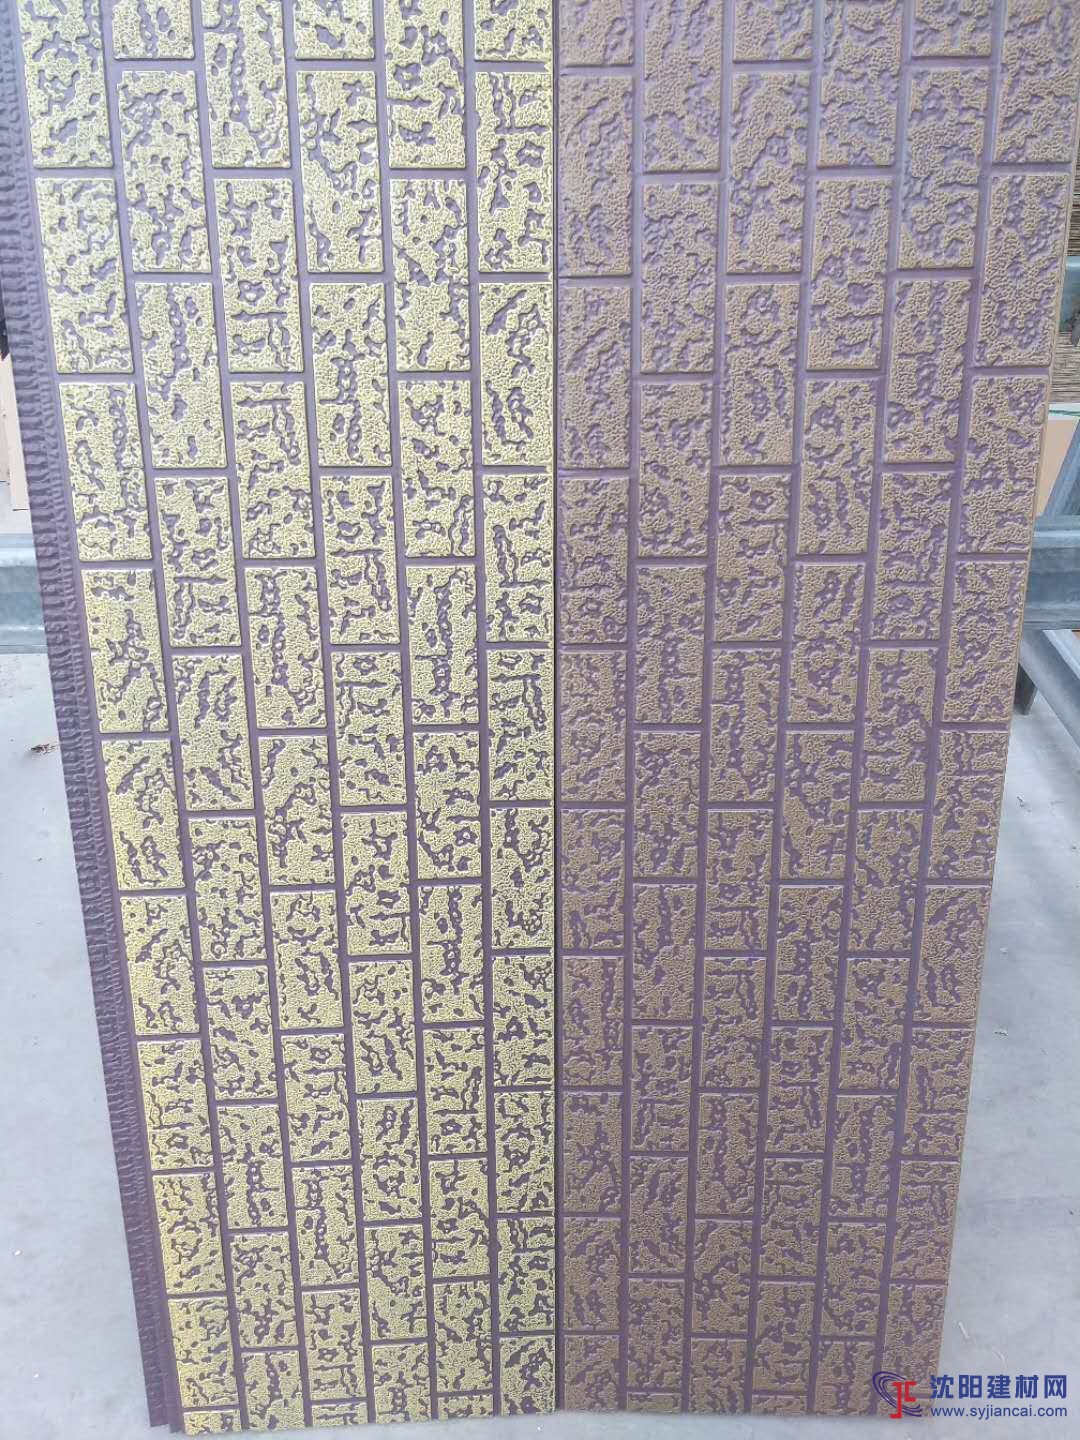 沈阳建材网
www.syjiancai.com